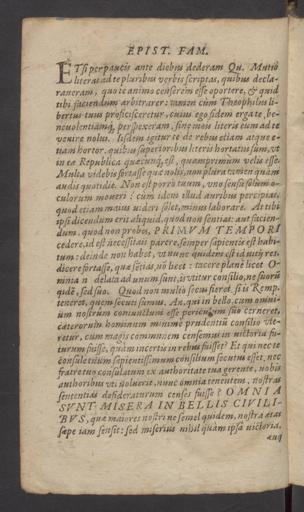 EPIST. FAM.
ETsi perpaucis ante diebus dederam Qu. Mutio
literas ad te pluribus verbis scriptas, quibus decla-
raueram, quo te animo censerem esse oportere, & quid
tibi faciendum arbitrarer: tamen cùm Theophilus li-
bertus tuus proficisceretur, cuius ego fidem erga te, be-
neuolentiamq́; perspexeram, sine meis literis eum ad te
venire nolui. Iisdem igitur te de rebus etiam atque e-
tiam hortor, quibus superioribus literis hortatus sum, vt
in ea Republica quæcunq; est, quamprimum velis esse.
Multa videbis fortasse quæ nolis, non plura tamen quàm
audis quotidie. Non est porrò tuum, vno sensu solùm o-
culorum moueri: cùm idem illud auribus percipias,
quod etiam maius videri solet, minus laborare. At tibi
ipsi dicendum erit aliquid, quod non sentias: aut facien-
dum, quod non probes, PRIMVM TEMPORI
cedere, id est necessitati parere, semper sapientis est habi-
tum: deinde non habet, vt nunc quidem est id vitij res.
dicere fortasse, quæ sentias, nō licet: tacere planè licet. O-
mnia n. delata ad unum sunt, is vtitur consilio, ne suorū
quidē, sed suo. Quod non multò secus fieret, si is Remp.
teneret, quem secuti sumus. An, qui in bello, cum omni-
um nostrûm coniunctum esset periculum suo cerneret,
cæterorum hominum minimè prudentiū consilio vte-
retur, eum magis communem censemus in victoria fu-
turum fuisse, quàm incertis in rebus fuisset? Et qui nec te
consulē tuum sapientissimum consilium secutus esset, nec
fratre tuo consulatum ex authoritate tua gerente, vobis
authoribus vti voluerit, nunc omnia tenentem, nostras
sententias desideraturum censes fuisse? OMNIA
SVNT MISERA IN BELLIS CIVILI-
BVS, quæ maiores nostri ne semel quidem, nostra ætas
sæpe iam sensit: sed miserius nihil quàm ipsa victoria,